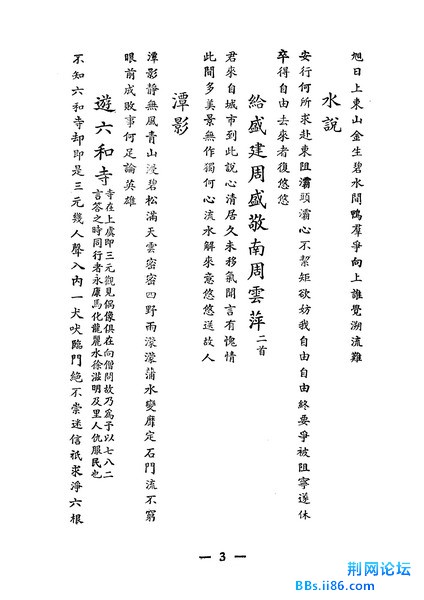 旭日上東山金生碧水間鴨羣爭向上誰覺溯流難
水說
安行何所求赴東阻灞頭灞心不絜矩欲妨我自由自由終要爭被阻寧遂休
卒得自由去來者復悠悠
給盛建周盛敬南周雲萍二首
君來自城市到此說心清居久未移氣聞言有愧情
此間多美景無作獨何心流水解來意悠悠送故人
潭影
潭影靜無風青山浸碧松滿天雲密密四野雨濛濛蒲水變靡定石門流不窮
眼前成敗事何足論英雄
遊六和寺寺在上虞即三元觀見偶像俱在向僧問故乃爲予以七八二
言答之時同行者永康馬化龍麗水徐滋明及里人仇服民也
不知六和寺却即是三元幾人聲入內一犬吠臨門絶不崇迷信祇求淨六根
— 3 —
荆网论坛
BBs.ii86.com